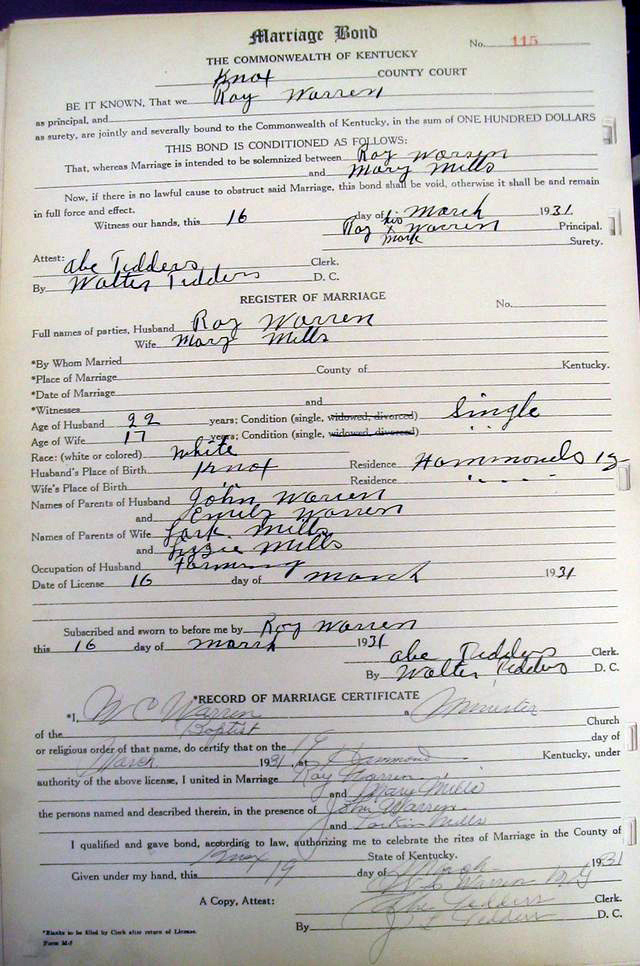 Marriage Bond
No. 115
THE COMMONWEALTH OF KENTUCKY
Knox COUNTY COURT
BE IT KNOWN, That we Roy Warren
as principal, and
as surety, are jointly and severally bound to the Commonwealth of Kentucky, in the sum of ONE HUNDRED DOLLARS
THIS BOND IS CONDITIONED AS FOLLOWS:
That, whereas Marriage is intended to be solemnized between Roy Warren
and Mary Mills
Now, if there is no lawful cause to obstruct said Marriage, this bond shall be void, otherwise it shall be and remain
in full force and effect.
Witness our hands, this 16 day of March 1931
Roy his x mark Warren Principal.
Surety.
Attest: Abe Tedders Clerk.
By Walter Tedders D. C.
REGISTER OF MARRIAGE
No.
Full names of parties, Husband Roy Warren
Wife Mary Mills
*By Whom Married
*Place of Marriage County of Kentucky.
*Date of Marriage
*Witnesses and
Age of Husband 22 years; Condition (single, widowed, divorced) Single
Age of Wife 17 years; Condition (single, widowed, divorced) " "
Race: (white or colored) White
Husband's Place of Birth Knox Residence Hammonds
Wife's Place of Birth " Residence " " "
Names of Parents of Husband John Warren
and Emily Warren
Names of Parents of Wife Lark Mills
and Lizzie Mills
Occupation of Husband Farming
Date of License 16 day of March 1931
Subscribed and sworn to before me by Roy Warren
this 16 day of March 1931
Abe Tedders Clerk.
By Walter Tedders D. C.
*RECORD OF MARRIAGE CERTIFICATE
*I, W C Warren a Minister
of the Baptist Church
or religious order of that name, do certify that on the 19 day of
March 1931, at Hammond Kentucky, under
authority of the above license, I united in Marriage Roy Warren
and Mary Mills
the persons named and described therein, in the presence of John Warren
and Larkin Mills
I qualified and gave bond, according to law, authorizing me to celebrate the rites of Marriage in the County of
Knox State of Kentucky.
Given under my hand, this 19 day of March 1931
W C Warren M.G
A Copy, Attest: Abe Tedders Clerk.
By J L Tedders D. C.
*Blanks to be filled by Clerk after return of License.
Form M-1